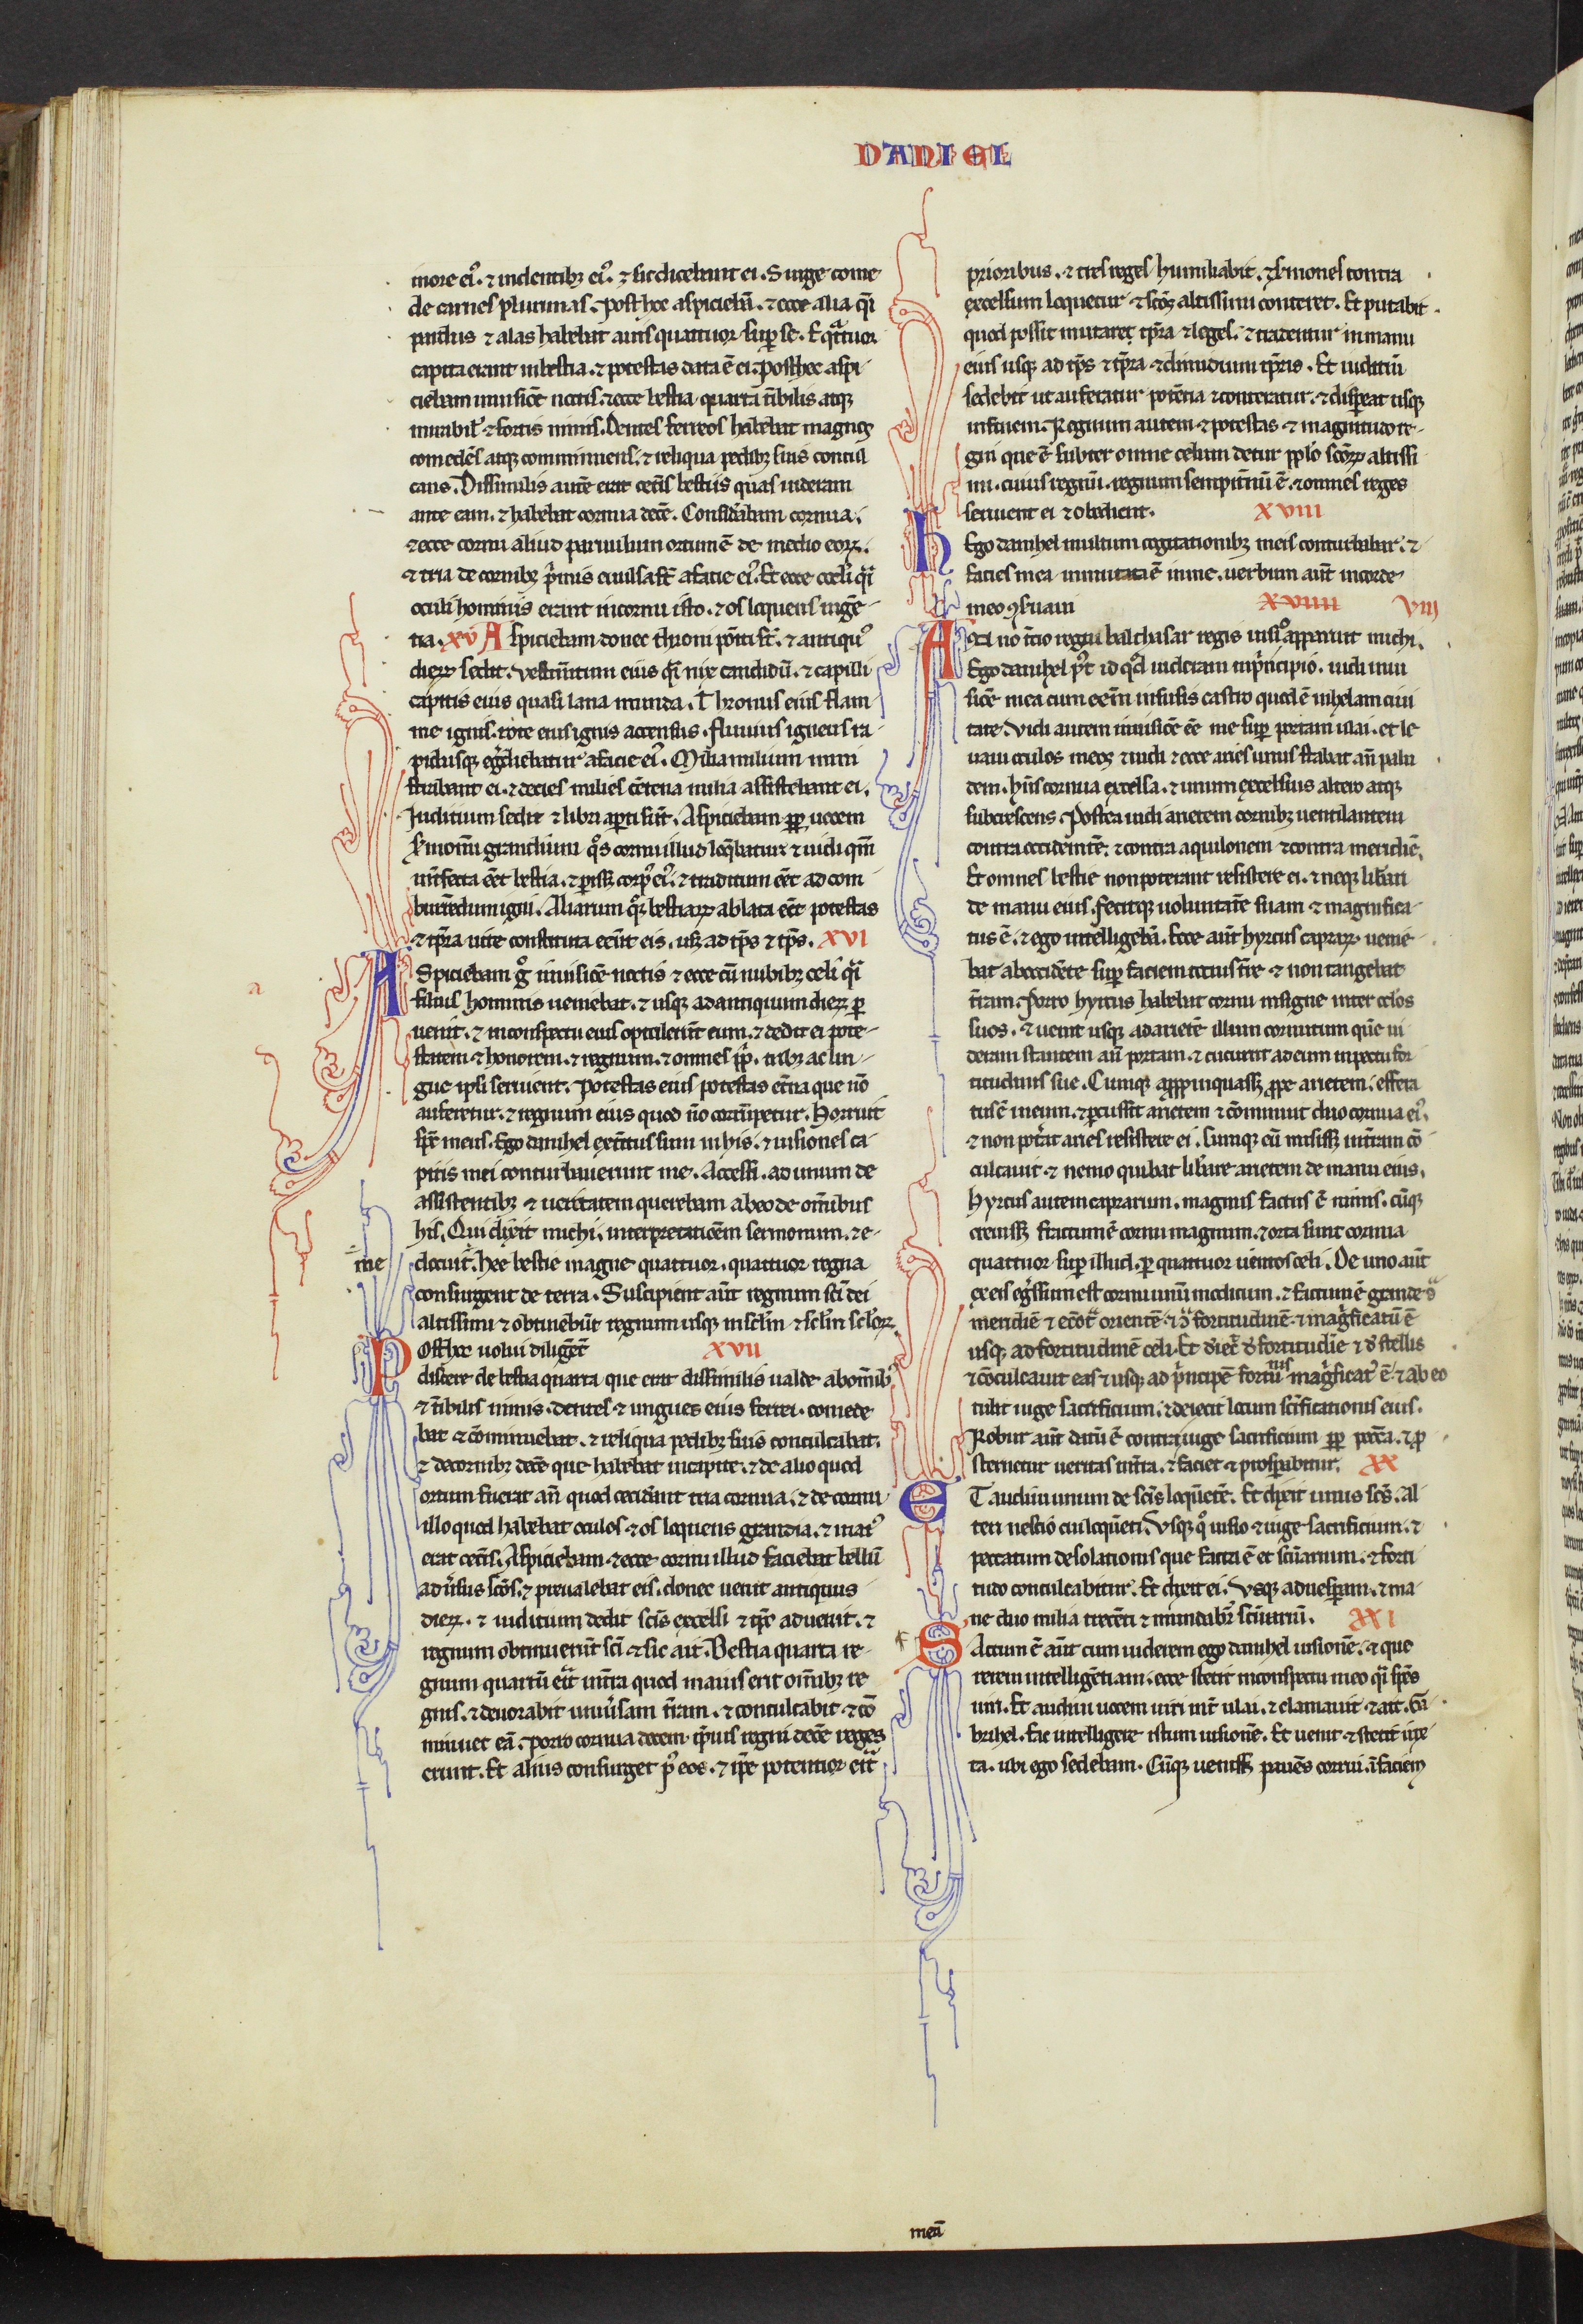 DANIEL
inore ei᷒. ⁊ in dentibꝫ ei᷒. ⁊ sic dicebant ei. Surge come
de carnes plurimas. Post hec aspiciebā. ⁊ ecce alia q̄si
pardus ⁊ alas habebat auis quattuor sup̱ se. Et q̄ttuor
capita erant in bestia. ⁊ potestas data ē ei. Post hec aspi
ciebam in uisiōe noctis. ⁊ ecce bestia quarta t̄ribilis atqꝫ
mirabil᷒ ⁊ fortis nimis. Dentes ferreos habebat magnos
comedēs atqꝫ comminuens. ⁊ reliqua pedibꝫ suis concul
cans. Dissimilis autē erat cet̄is bestiis quas uideram
ante eam. ⁊ habebat cornua decē. Considerabam cornua.
⁊ ecce cornu aliud paruulum ortum ē de medio eoꝝ.
⁊ tria de cornibꝫ p̄mis euulsa st̄ a facie ei᷒. Et ecce oculi q̄si
oculi hominis erant in cornu isto. ⁊ os loquens ingē
tia. xv Aspiciebam donec throni po̅iti st̄. ⁊ antiqu᷒
dieꝝ sedit. Vestim̄tum eius q̄si nix candidū. ⁊ capilli
capitis eius quasi lana munda. Thronus eius flam
me ignis. rote eius ignis accensus. Fluuius igneus ra
pidusqꝫ eg̃diebatur a facie ei᷒. Milia milium mini
strabant ei. ⁊ decies milies cētena milia assistebant ei.
Iuditium sedit ⁊ libri aperti sūt. Aspiciebam ꝓp̱ uocem
sermonū grandium q̊s cornu illud loq̄batur ⁊ uidi qm̄
int̄fecta eēt bestia. ⁊ perissꝫ corp᷒ ei᷒. ⁊ traditum eēt ad com
burēdum igni. Aliarum qꝫ bestiaꝝ ablata eēt potestas
⁊ tp̄ra uite constituta eēnt eis. usqꝫ ad tp̄s ⁊ tp̄s. XVI
ASpiciebam g̊ in uisiōe noctis ⁊ ecce cū nubibꝫ celi q̄si
filius hominis ueniebat. ⁊ usqꝫ ad antiquum dieꝝ ꝑ
uenit. ⁊ in conspectu eius optulerūt eum. ⁊ dedit ei pote
statem ⁊ honorem. ⁊ regnum. ⁊ omnes pp̄li. tribꝫ ac lin
gue ipsi seruient. Potestas eius potestas et̄na que nō
auferetur. ⁊ regnum eius quod nō corrūpetur. Horruit
sp̄s meus. Ego danihel ext̄ritus sum in his. ⁊ uisiones ca
pitis mei conturbauerunt me. Accessi. ad unum de
assistentibꝫ ⁊ ueritatem querebam ab eo de om̄ibus
his. Qui dixit michi. interpretatiōem sermonum. ⁊ e
me docuit. hee bestie magne quattuor. quattuor regna
consurgent de terra. Suscipient aūt regnum sc̄i dei
altissimi ⁊ obtinebūt regnum usqꝫ in sc̄lm ⁊ sc̄lm sc̄loꝝ.
POst hec uolui diligēt᷒ XVII
discere de bestia quarta que erat dissimilis ualde ab om̄ibꝫ
⁊ t̄ribilis nimis. dentes ⁊ ungues eius ferrei. comede
bat ⁊ cōminuebat. ⁊ reliqua pedibꝫ suis conculcabat.
⁊ de cornibꝫ decē que habebat in capite. ⁊ de alio quod
ortum fuerat an̄ quod ceciderāt tria cornua. ⁊ de cornu
illo quod habebat oculos ⁊ os loquens grandia. ⁊ mai᷒
erat cet̄is. Aspiciebam ⁊ ecce cornu illud faciebat bellū
aduersus sc̄os. ⁊ preualebat eis. donec uenit antiquus
dieꝝ. ⁊ iuditium dedit sc̄is excelsi ⁊ tp̄s aduenit. ⁊
regnum obtinuerūt sc̄i ⁊ sic ait. Bestia quarta re
gnum quartū erit in t̄ra quod maius erit om̄ibꝫ re
gnis. ⁊ deuorabit uniuersam t̄ram. ⁊ conculcabit. ⁊ cō
minuet eā. Porro cornua decem. ip̄ius regni decē reges
erunt. Et alius consurget p᷒ eos. ⁊ ip̄e potentior erit
prioribus. ⁊ tres reges humiliabit. ⁊ sermones contra
excelsum loquetur ⁊ sc̄os altissimi conteret. Et putabit
quod possit mutare tp̄ra ⁊ leges. ⁊ tradentur in manu
eius usqꝫ ad tp̄s ⁊ tp̄ra ⁊ dimidium tp̄ris. Et iuditiū
sedebit ut auferatur potētia ⁊ conteratur. ⁊ dispereat usqꝫ
in finem. Regnum autem ⁊ potestas ⁊ magnitudo re
gni que ē subter omne celum detur pp̄lo sc̄oꝝ altissi
mi. cuius regnū. regnum sempit̄nū ē. ⁊ omnes reges
seruient ei ⁊ obedient. XVIII
hEgo danihel multum cogitationibꝫ meis conturbabar. ⁊
facies mea inmutata ē in me. uerbum aūt in corde
meo ꝯseruaui XVIIII VIII
ANno t̄tio regni balthasar regis uisio apparuit michi.
Ego danihel p᷒t id qd̄ uideram in p̄ncipio. uidi in ui
siōe mea cum eēm in susis castro quod ē in helam ciui
tate. Vidi autem in uisiōe eē me sup̱ portam ulai. et le
uaui oculos meos ⁊ uidi ⁊ ecce aries unus stabat an̄ palu
dem. hn̄s cornua excelsa. ⁊ unum excelsius altero atqꝫ
subcrescens. Postea uidi arietem cornibꝫ uentilantem
contra occidentē. ⁊ contra aquilonem ⁊ contra meridiē.
Et omnes bestie non poterant resistere ei. ⁊ neqꝫ liberari
de manu eius. Fecitqꝫ uoluntatē suam ⁊ magnifica
tus ē. ⁊ ego intelligebā. Ecce aūt hyrcus capraꝝ uenie
bat ab occidēte sup̱ faciem totius t̄re ⁊ non tangebat
t̄ram. Porro hyrcus habebat cornu insigne inter oculos
suos. ⁊ uenit usqꝫ ad arietē illum cornutum quē ui
deram stantem an̄ portam. ⁊ cucurrit ad eum inpetu for
titudinis sue. Cumqꝫ appropinquassꝫ ꝓpe arietem. effera
tus ē in eum. ⁊ percussit arietem ⁊ cōminuit duo cornua ei᷒.
⁊ non pot̄at aries resistere ei. Cumqꝫ eū misissꝫ in t̄ram cō
culcauit. ⁊ nemo quibat liberare arietem de manu eius.
Hyrcus autem caprarum. magnus factus ē nimis. cūqꝫ
creuissꝫ fractum ē cornu magnum. ⁊ orta sunt cornua
quattuor sup̱ illud. ꝑ quattuor uentos celi. De uno aūt
ex eis eg̃ssum est cornu unū modicum. ⁊ factum ē grande ↄ̄
meridiē ⁊ ↄ̄ orientē ⁊ ↄ̄ fortitudinē. ⁊ mag̊ficatū ē
usqꝫ ad fortitudinē celi. Et deiec̄ de fortitudīe ⁊ de stellis
⁊ cōculcauit eas ⁊ usqꝫ ad p̄ncipē fortitudinis mag̊ficat᷒ ē. ⁊ ab eo
tulit iuge sacrificium. ⁊ deiecit locum sc̄ificationis eius.
Robur aūt datū ē contra iuge sacrificium ꝓp̱ pecc̄a. ⁊ ꝓ
sternetur ueritas in t̄ra. ⁊ faciet ⁊ prosperabitur. XX
ET audiui unum de sc̄is loquētē. Et dixit unus sc̄s. al
teri nescio cui loquēti. Vsqꝫ q̊ uisio ⁊ iuge sacrificium. ⁊
peccatum desolationis que facta ē et sc̄uarium. ⁊ forti
tudo conculcabitur. Et dixit ei. Vsqꝫ ad uesperam. ⁊ ma
ne duo milia trecēti ⁊ mundabit᷒ sc̄uariū. XXI
FActum ē aūt cum uiderem ego danihel uisionē. ⁊ que
rerem intelligētiam. ecce stetit in conspectu meo q̄si spēs
uiri. Et audiui uocem uiri int̄ ulai. ⁊ clamauit ⁊ ait. Ga
brihel. fac intelligere istum uisionē. Et uenit ⁊ stetit iux
ta. ubi ego stabam. Cūqꝫ uenissꝫ pauēs corrui ī faciem
meā